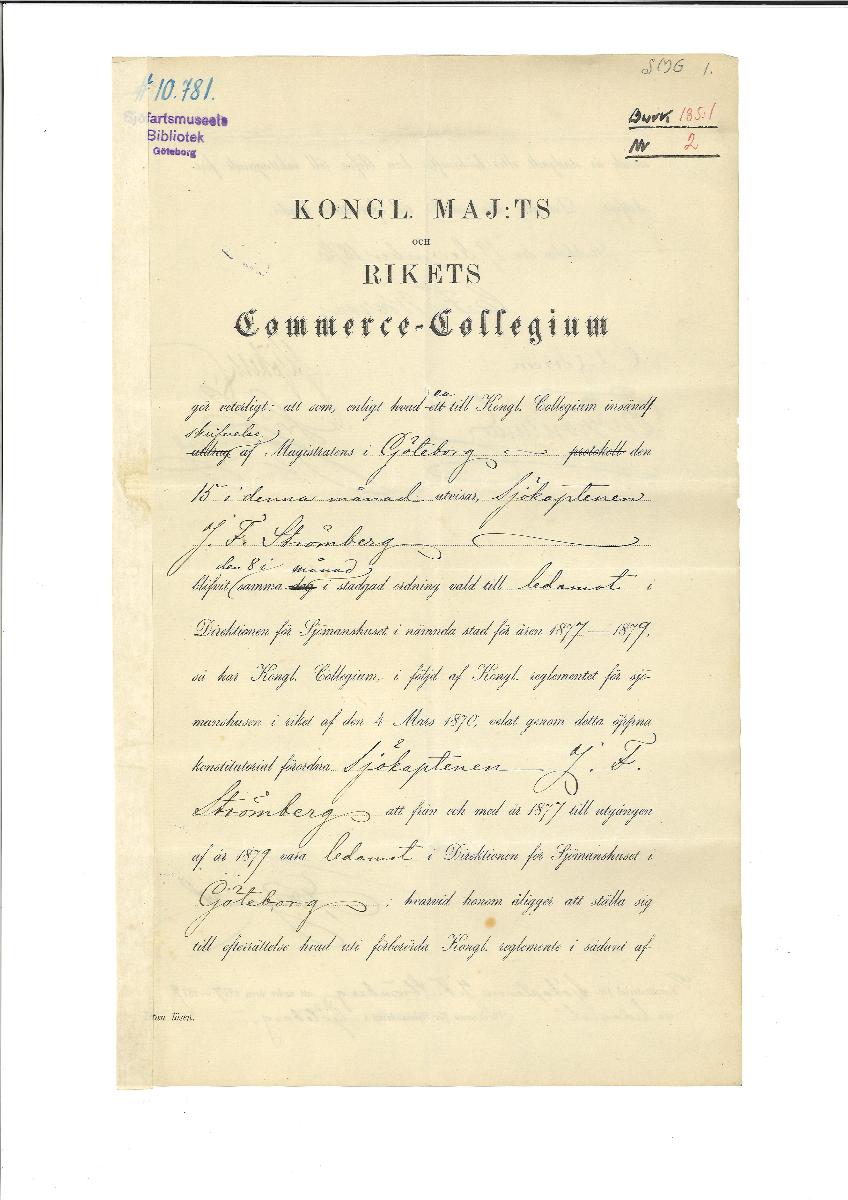 SMG 1.
N 10.781.
Sjöfartsmuseets
Bibliotek
Göteborg
Burk 185:1
Nr 2
KONGL. MAJ:TS
OCH
RIKETS
Commerce-Collegium
gör veterligt: att som, enligt hvad ett en till Kongl. Collegium insändt
utdrag skrifvelse af Magistratens i Göteborg protokoll den
15 i denna månad utvisar, Sjökaptenen
J. F. Strömberg
blifvit den 8 i samma dag månad i stadgad ordning vald till ledamot i
Direktionen för Sjömanshuset i nämnda stad för åren 1877–1879,
så har Kongl. Collegium, i följd af Kongl. reglementet för sjö-
manshusen i riket af den 4 Mars 1870, velat genom detta öppna
konstitutorial förordna Sjökaptenen J. F.
Strömberg att från och med år 1877 till utgången
af år 1879 vara ledamot i Direktionen för Sjömanshuset i
Göteborg; hvarvid honom åligger att ställa sig
till efterrättelse hvad uti förberörda Kongl. reglemente i sådant af-
lösen.